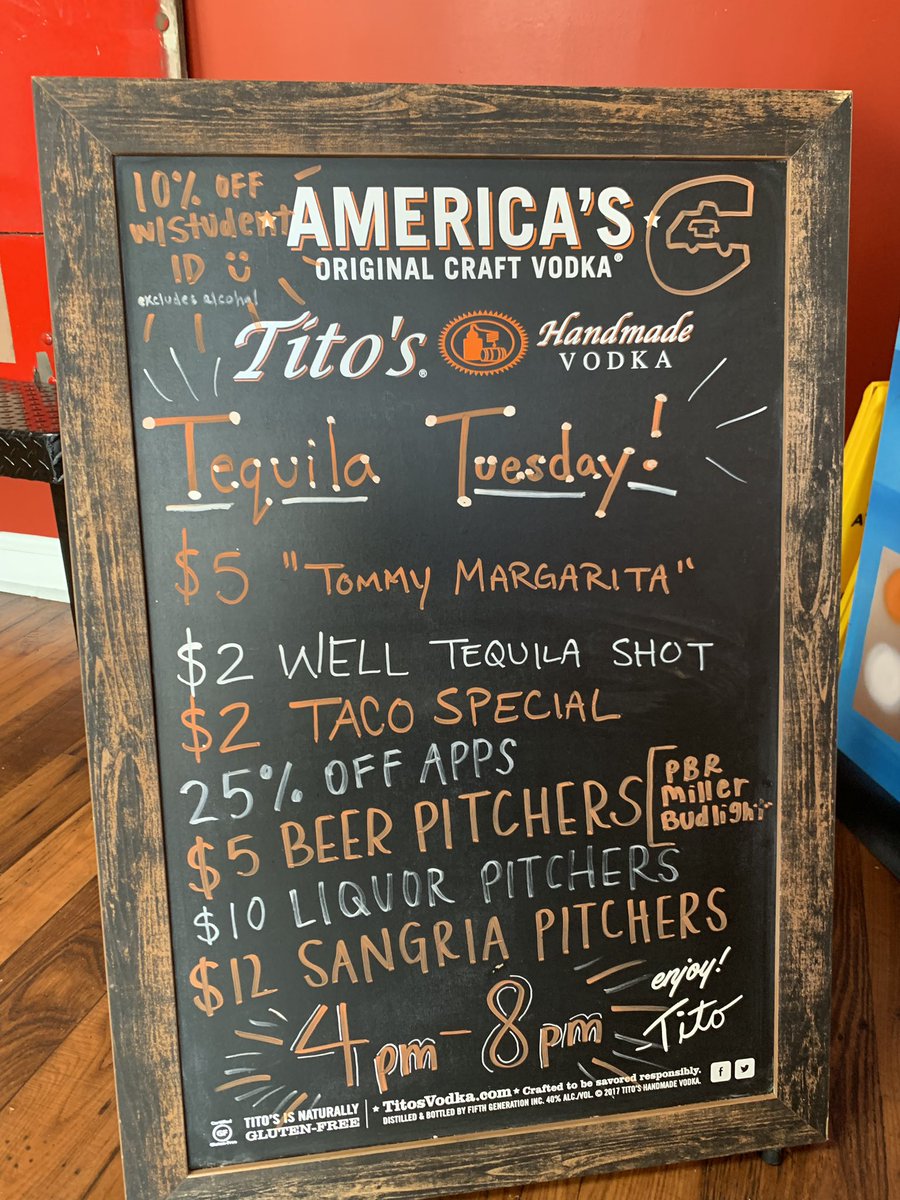 10% OFF
w/Student
ID
excludes alcohol
AMERICA'S
ORIGINAL CRAFT VODKA®
Tito's® Handmade
VODKA
Tequila Tuesday!
$5 "TOMMY MARGARITA"
$2 WELL TEQUILA SHOT
$2 TACO SPECIAL
25% OFF APPS
$5 BEER PITCHERS
PBR
Miller
Budlight
$10 LIQUOR PITCHERS
$12 SANGRIA PITCHERS
4pm - 8pm
enjoy!
Tito
TITO'S IS NATURALLY
GLUTEN-FREE
* TitosVodka.com * Crafted to be savored responsibly.
DISTILLED & BOTTLED BY FIFTH GENERATION INC. 40% ALC./VOL. © 2017 TITO'S HANDMADE VODKA.